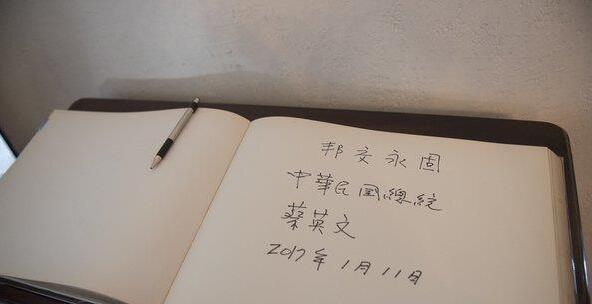 邦交永固
中華民国總統
蔡英文
2017年1月11日